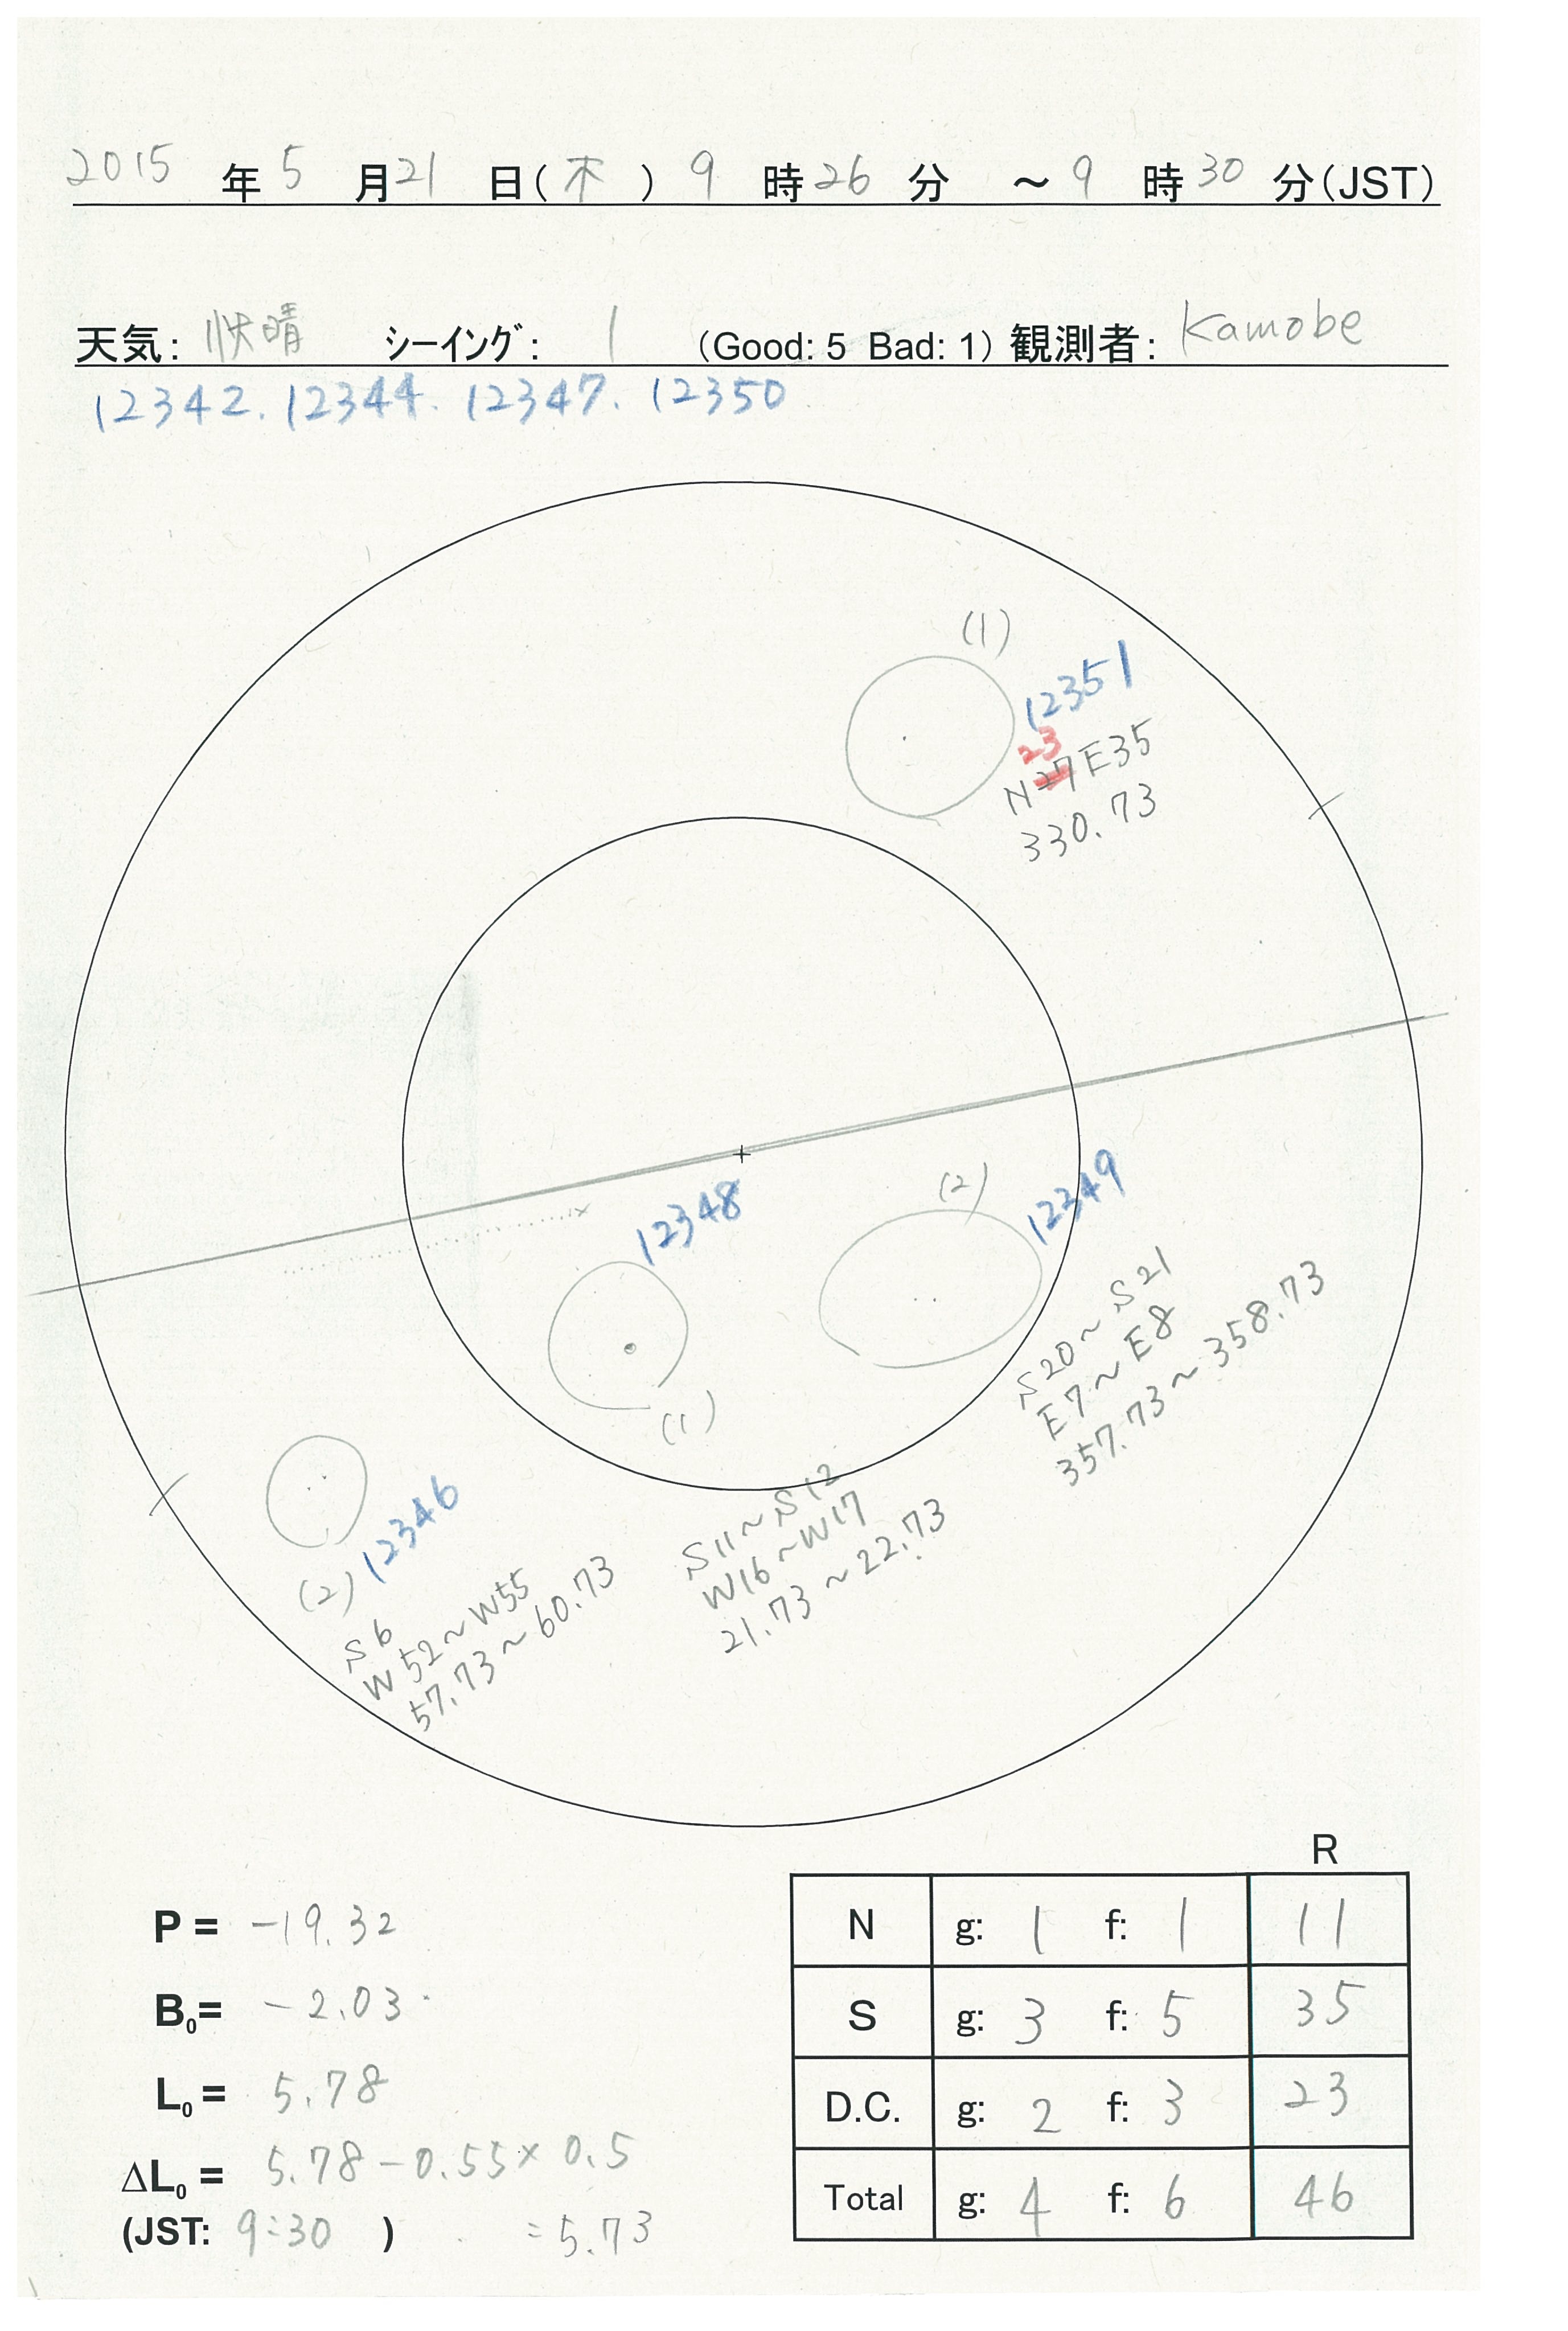 2015 年 5 月 21 日(木) 9 時 26 分 ～ 9 時 30 分(JST)
天気: 快晴 ｼｰｲﾝｸﾞ: 1 (Good: 5 Bad: 1) 観測者: Kamobe
12342. 12344. 12347. 12350
(1)
12351
23
N27E35
330.73
(2)
12349
S20~S21
E7~E8
357.73~358.73
12348
(1)
S11~S12
W16~W17
21.73~22.73
12346
(2)
S6
W52~W55
57.73~60.73
P = -19.32
B0= -2.03
L0 = 5.78
ΔL0 = 5.78-0.55×0.5
(JST: 9:30 ) =5.73
R
N g: 1 f: 1 11
S g: 3 f: 5 35
D.C. g: 2 f: 3 23
Total g: 4 f: 6 46